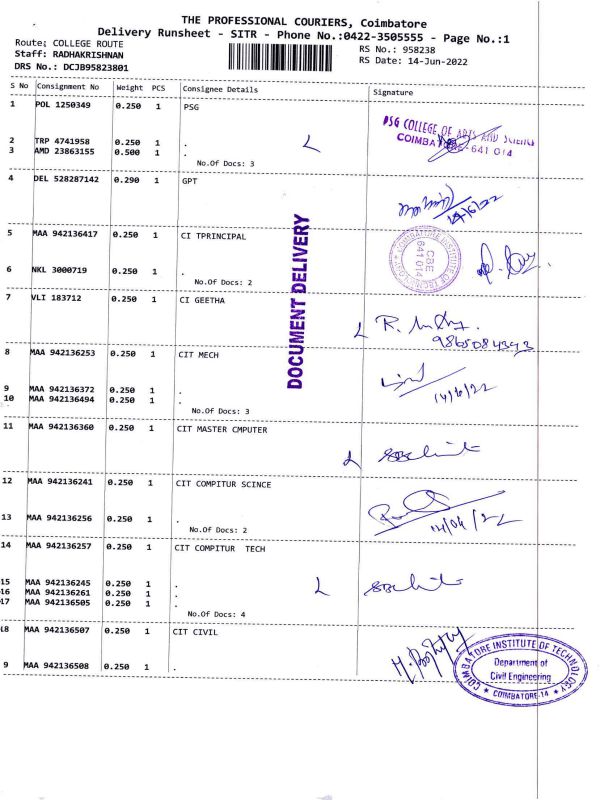 THE PROFESSIONAL COURIERS, Coimbatore
Delivery Runsheet - SITR - Phone No.:0422-3505555 - Page No.:1
Route: COLLEGE ROUTE
RS No.: 958238
Staff: RADHAKRISHNAN
RS Date: 14-Jun-2022
DRS No.: DCJB95823801
S No Consignment No Weight PCS Consignee Details Signature
1 POL 1250349 0.250 1 PSG
PSG COLLEGE OF ARTS AND SCIENCE
COIMBATORE-641 014
2 TRP 4741958 0.250 1 .
3 AMD 23863155 0.500 1 .
No.Of Docs: 3
4 DEL 528287142 0.290 1 GPT
DOCUMENT DELIVERY
5 MAA 942136417 0.250 1 CI TPRINCIPAL
COIMBATORE INSTITUTE OF TECHNOLOGY
CBE
641 014
6 NKL 3000719 0.250 1 .
No.Of Docs: 2
7 VLI 183712 0.250 1 CI GEETHA
9865084343
8 MAA 942136253 0.250 1 CIT MECH
14/6/22
9 MAA 942136372 0.250 1 .
10 MAA 942136494 0.250 1 .
No.Of Docs: 3
11 MAA 942136360 0.250 1 CIT MASTER CMPUTER
12 MAA 942136241 0.250 1 CIT COMPITUR SCINCE
14/06/22
13 MAA 942136256 0.250 1 .
No.Of Docs: 2
14 MAA 942136257 0.250 1 CIT COMPITUR TECH
15 MAA 942136245 0.250 1 .
16 MAA 942136261 0.250 1 .
17 MAA 942136505 0.250 1 .
No.Of Docs: 4
18 MAA 942136507 0.250 1 CIT CIVIL
COIMBATORE INSTITUTE OF TECHNOLOGY
Department of
Civil Engineering
COIMBATORE-14
9 MAA 942136508 0.250 1 .